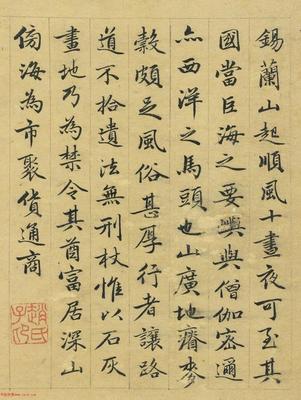 錫蘭山起順風十晝夜可至其
國當巨海之要嶼與僧伽密邇
亦西洋之馬頭也山廣地瘠麥
穀頗足風俗甚厚行者讓路
道不拾遺法無刑杖惟以石灰
畫地乃為禁令其酋富居深山
傍海為市聚貨通商
趙氏子昂